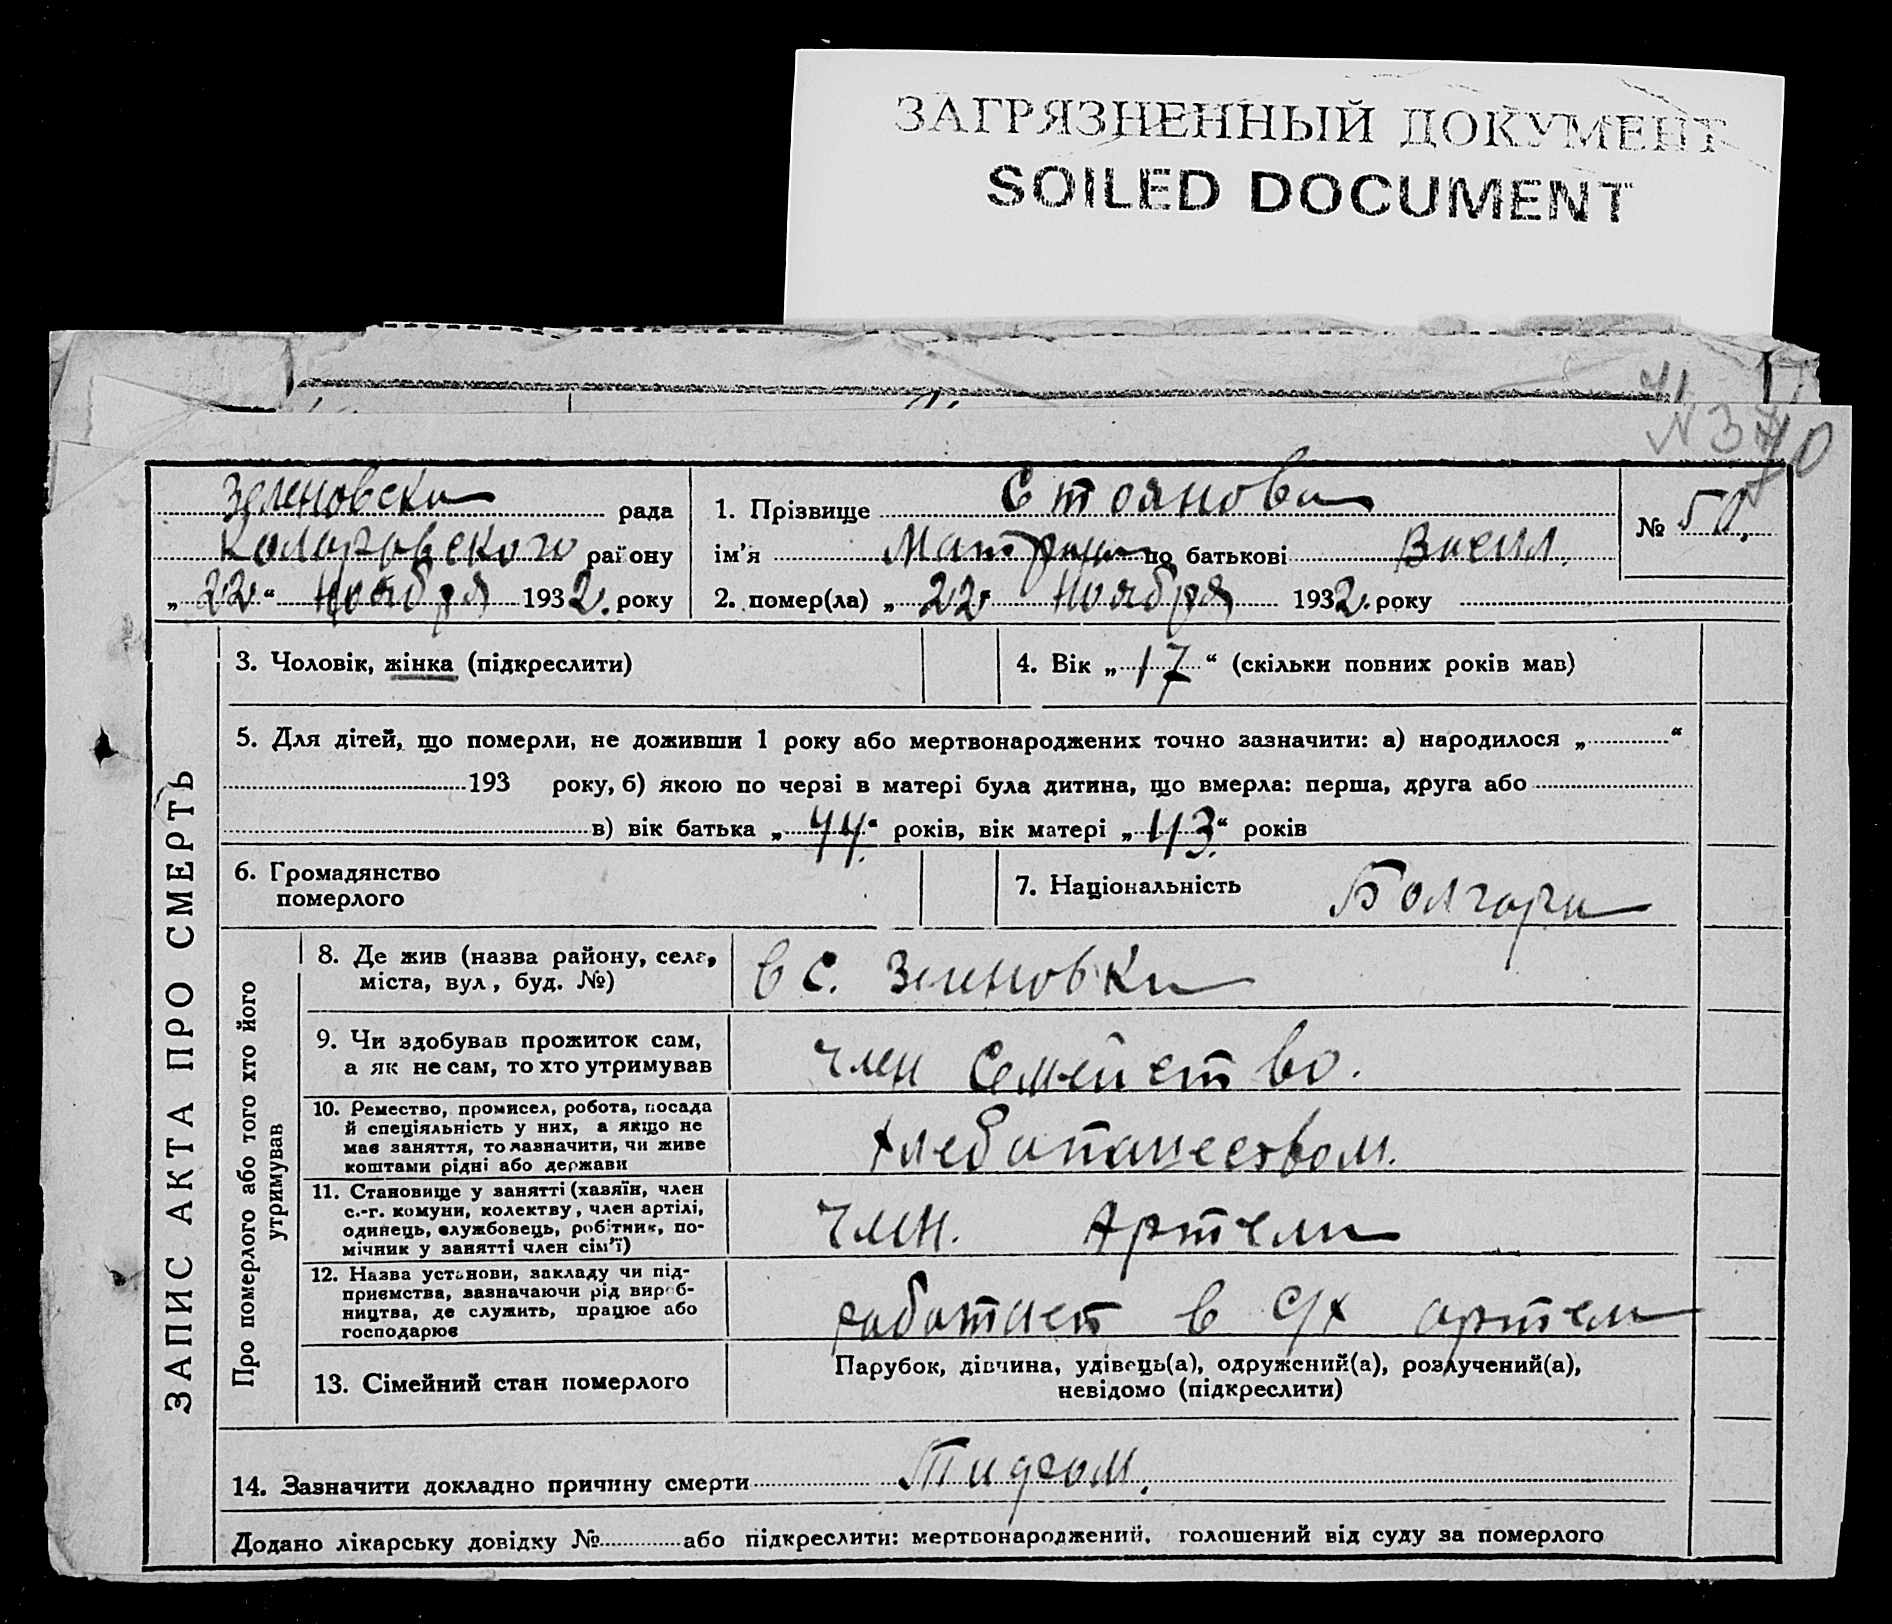 ЗАГРЯЗНЕННЫЙ ДОКУМЕНТ
SOILED DOCUMENT
N 370
Зеленовска рада
Коларовского району
„22“ ноября 1932. року
1. Прізвище Стоянова
ім’я Матрона по батькові Васил.
2. помер(ла) „22“ ноября 1932. року
№ 50.
3. Чоловік, жінка (підкреслити)
4. Вік „17“ (скільки повних років мав)
5. Для дітей, що померли, не доживши 1 року або мертвонароджених точно зазначити: а) народилося „ “
193 року, б) якою по черзі в матері була дитина, що вмерла: перша, друга або
в) вік батька „44.“ років, вік матері „43.“ років
6. Громадянство
померлого
7. Національність Болгарка
ЗАПИС АКТА ПРО СМЕРТЬ
Про померлого або того хто його
утримував
8. Де жив (назва району, села,
міста, вул, буд. №)
в с. Зеленовка
9. Чи здобував прожиток сам,
а як не сам, то хто утримував
член Семейство.
10. Ремество, промисел, робота, посада
й спеціяльність у них, а якщо не
має заняття, то зазначити, чи живе
коштами рідні або держави
хлебопашеством.
11. Становище у занятті (хазяїн, член
с.-г. комуни, колектву, член артілі,
одинець, службовець, робітник, по-
мічник у занятті член сім’ї)
член. Артели
12. Назва установи, закладу чи під-
приємства, зазначаючи рід вироб-
ництва, де служить, працює або
господарює
работает в с/х артели
13. Сімейний стан померлого
Парубок, дівчина, удівець(а), одружений(а), розлучений(а),
невідомо (підкреслити)
14. Зазначити докладно причину смерти Тифом.
Додано лікарську довідку № або підкреслити: мертвонароджений, голошений від суду за померлого